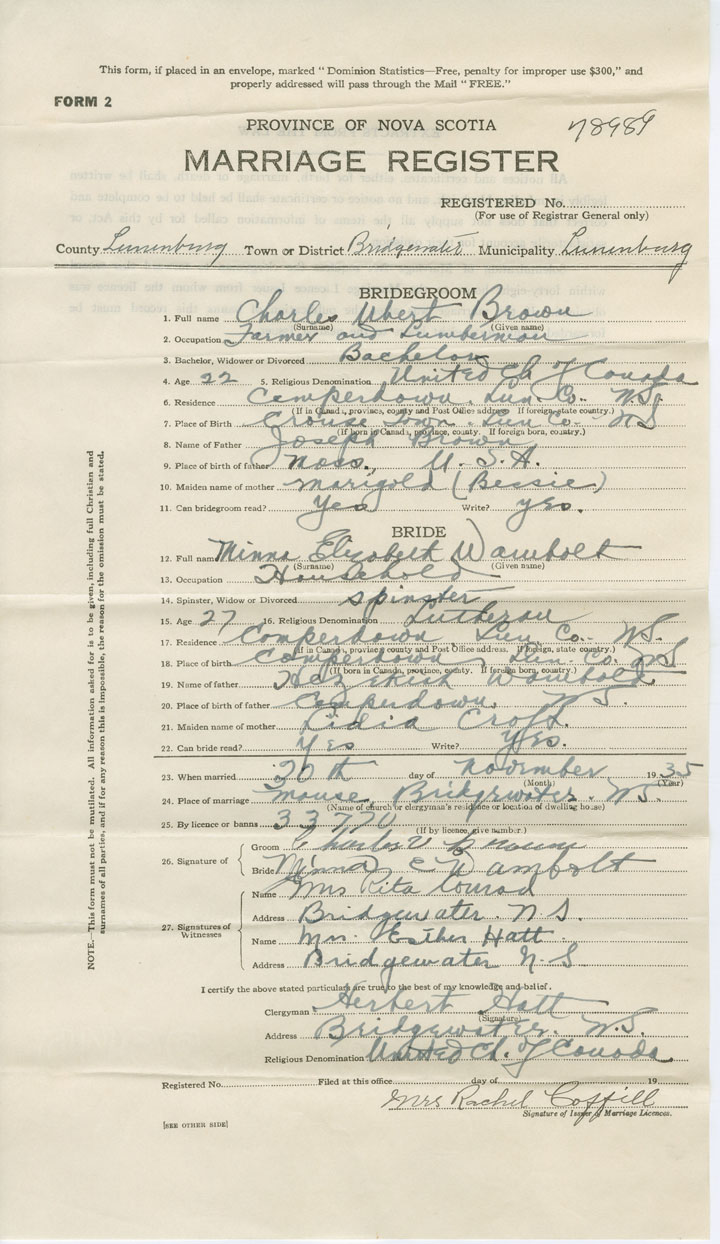 This form, if placed in an envelope, marked "Dominion Statistics—Free, penalty for improper use $300," and
properly addressed will pass through the Mail "FREE."
FORM 2
PROVINCE OF NOVA SCOTIA
78989
MARRIAGE REGISTER
REGISTERED No.
(For use of Registrar General only)
County Lunenburg Town or District Bridgewater Municipality Lunenburg
BRIDEGROOM
1. Full name Charles Ubert Brown
(Surname) (Given name)
2. Occupation Farmer and Lumberman
3. Bachelor, Widower or Divorced Bachelor
4. Age 22 5. Religious Denomination United Ch of Canada
6. Residence Camperdown, Lun Co. N.S.
(If in Canada, province, county and Post Office address. If foreign, state country.)
7. Place of Birth Crouse Town. Lun Co. NS
(If born in Canada, province, county. If foreign born, country.)
8. Name of Father Joseph Brown
9. Place of birth of father Mass., U.S.A.
10. Maiden name of mother Marigold (Bessie)
11. Can bridegroom read? Yes Write? yes.
BRIDE
12. Full name Minna Elizabeth Wambolt
(Surname) (Given name)
13. Occupation Household
14. Spinster, Widow or Divorced spinster
15. Age 27 16. Religious Denomination Lutheran
17. Residence Camperdown Lun Co. N.S.
(If in Canada, province, county and Post Office address. If foreign, state country.)
18. Place of birth Camperdown, Lun. Co. NS
(If born in Canada, province, county. If foreign born, country.)
19. Name of father Hezekiah Wambolt
20. Place of birth of father Camperdown. N.S.
21. Maiden name of mother Lidia Croft.
22. Can bride read? Yes Write? Yes.
23. When married 20th day of November 1935
(Month) (Year)
24. Place of marriage Bridgewater. N.S.
(Name of church or clergyman's residence or location of dwelling house)
25. By licence or banns 33770
(If by licence, give number.)
26. Signature of
Groom Charles U Brown
Bride Minna E Wambolt
27. Signatures of Witnesses
Name Mrs Rita Conrad
Address Bridgewater. N.S.
Name Mrs. Esther Hatt
Address Bridgewater N.S
I certify the above stated particulars are true to the best of my knowledge and belief.
Clergyman Herbert Hatt
(Signature)
Address Bridgewater. N.S.
Religious Denomination United Ch. of Canada
Registered No. Filed at this office day of 19
Mrs Rachel Coffill
Signature of Issuer of Marriage Licences.
[SEE OTHER SIDE]
NOTE.—This form must not be mutilated. All information asked for is to be given, including full Christian and
surnames of all parties, and if for any reason this is impossible, the reason for the omission must be stated.